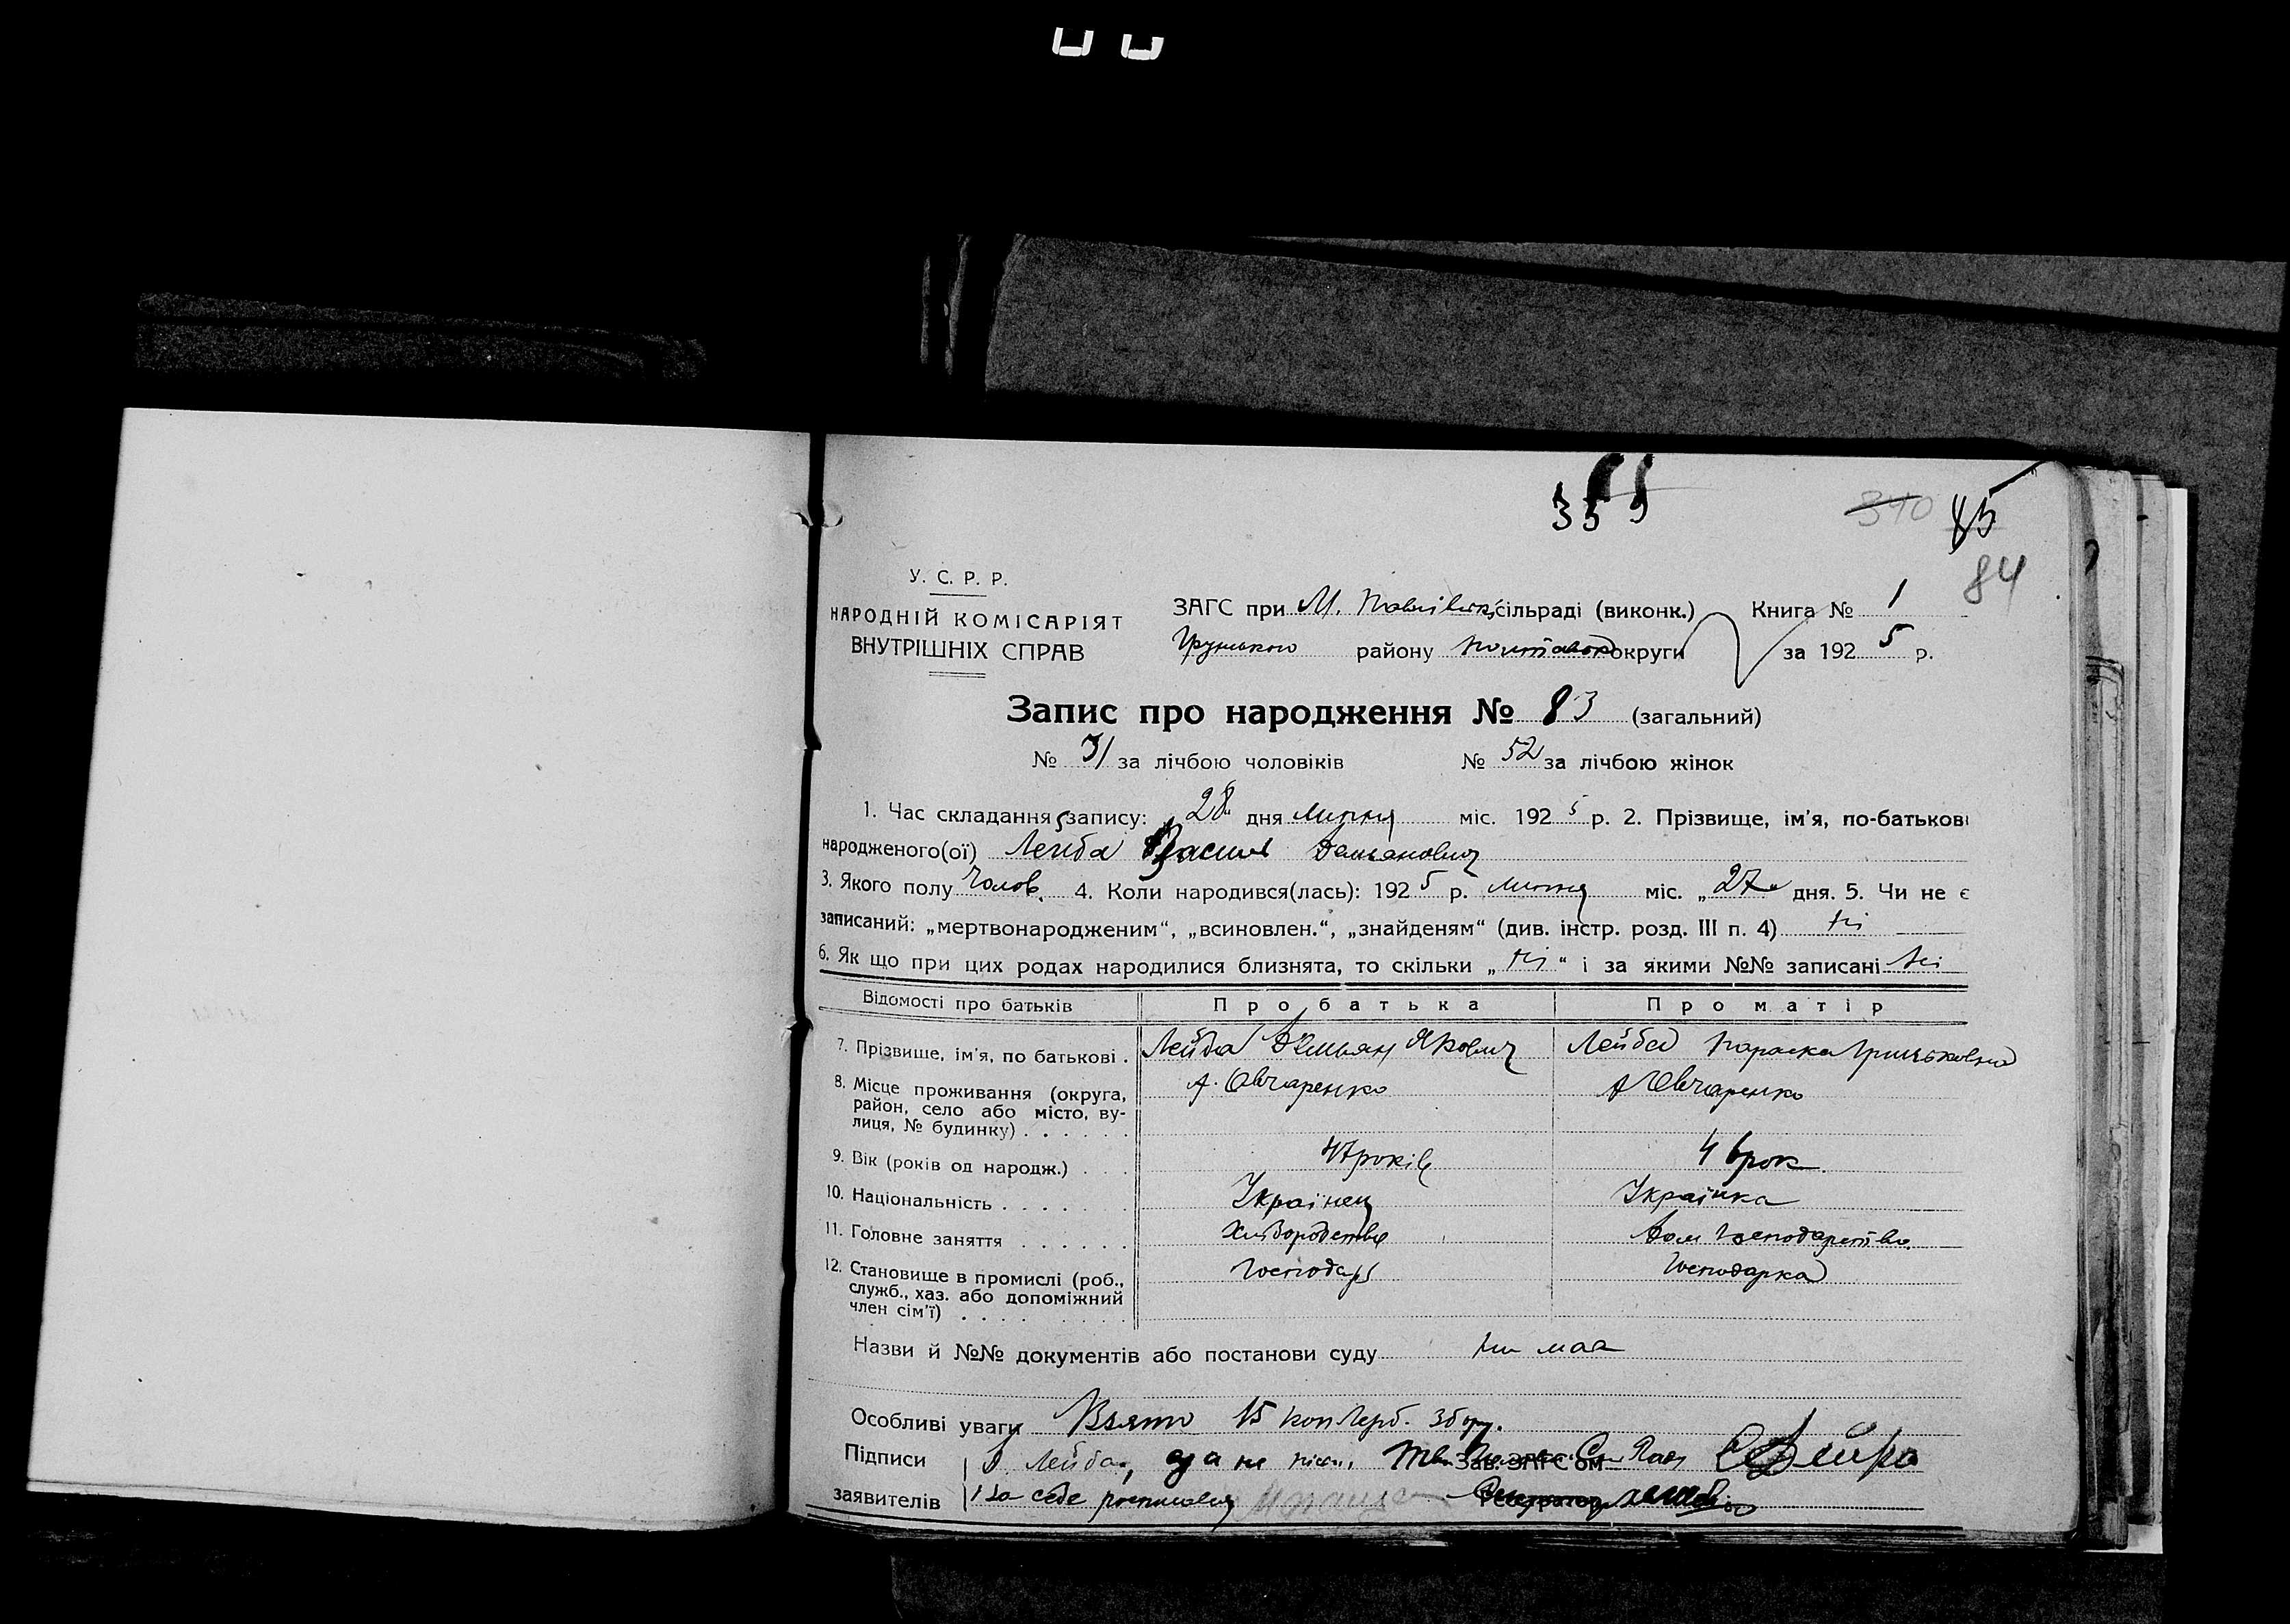 359
340 85
84
У. С. Р. Р.
НАРОДНІЙ КОМІСАРІЯТ
ВНУТРІШНІХ СПРАВ
ЗАГС при М. сільраді (виконк.) Книга № 1
Грунського району округи за 1925 р.
Запис про народження № 83 (загальний)
№ 31 за лічбою чоловіків № 52 за лічбою жінок
1. Час складання запису: „28“ дня Липня міс. 1925 р. 2. Прізвище, ім'я, по-батькові
народженого(ої) Лейба Василь Демьянович
3. Якого полу Чолов. 4. Коли народився(лась): 1925 р. липня міс. „27“ дня. 5. Чи не є
записаний: „мертвонародженим“, „всиновлен.“, „знайденям“ (див. інстр. розд. III п. 4) ні
6. Як що при цих родах народилися близнята, то скільки „ні“ і за якими №№ записані ні
Відомості про батьків Про батька Про матір
7. Прізвище, ім'я, по батькові . Лейба Демьян Якович Лейба Параска Грицьковна
8. Місце проживання (округа, район, село або місто, вулиця, № будинку) . . . . . . А. Овчаренко А Овчаренко
9. Вік (років од народж.) . . . 47 років 46 рок
10. Національність . . . . . . Українец Українка
11. Головне заняття . . . . . . Хліборобство Дом господарство
12. Становище в промислі (роб., служб., хаз. або допоміжний член сім'ї) . . . . . . . . Господарь Господарка
Назви й №№ документів або постанови суду ни маа
Особливі уваги Взято 15 коп Герб. збору.
Підписи Лейба, а за не Зав. ЗАГС'ом
заявителів за себе росписався